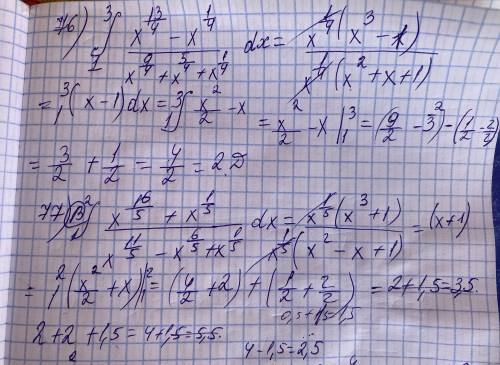 76) ∫₁³ (x^(13/4) − x^(1/4)) / (x^(9/4) + x^(5/4) + x^(1/4)) dx = x^(1/4)(x³ − 1) / x^(1/4)(x² + x + 1)
= ₁³(x−1)dx = ₁³∫ x²/2 − x = x²/2 − x |₁³ = (9/2 − 3²) − (1/2 − 2/2)
= 3/2 + 1/2 = 4/2 = 2 D
77) B ∫₁² (x^(16/5) + x^(1/5)) / (x^(11/5) − x^(6/5) + x^(1/5)) dx = x^(1/5)(x³ + 1) / x^(1/5)(x² − x + 1) = (x+1)
= ₁²(x²/2 + x)|₁² = (4/2 + 2) + (1/2 + 2/2) = 2 + 1,5 = 3,5.
0,5 + 1 = 1,5
2 + 2 + 1,5 = 4 + 1,5 = 5,5.
4 − 1,5 = 2,5